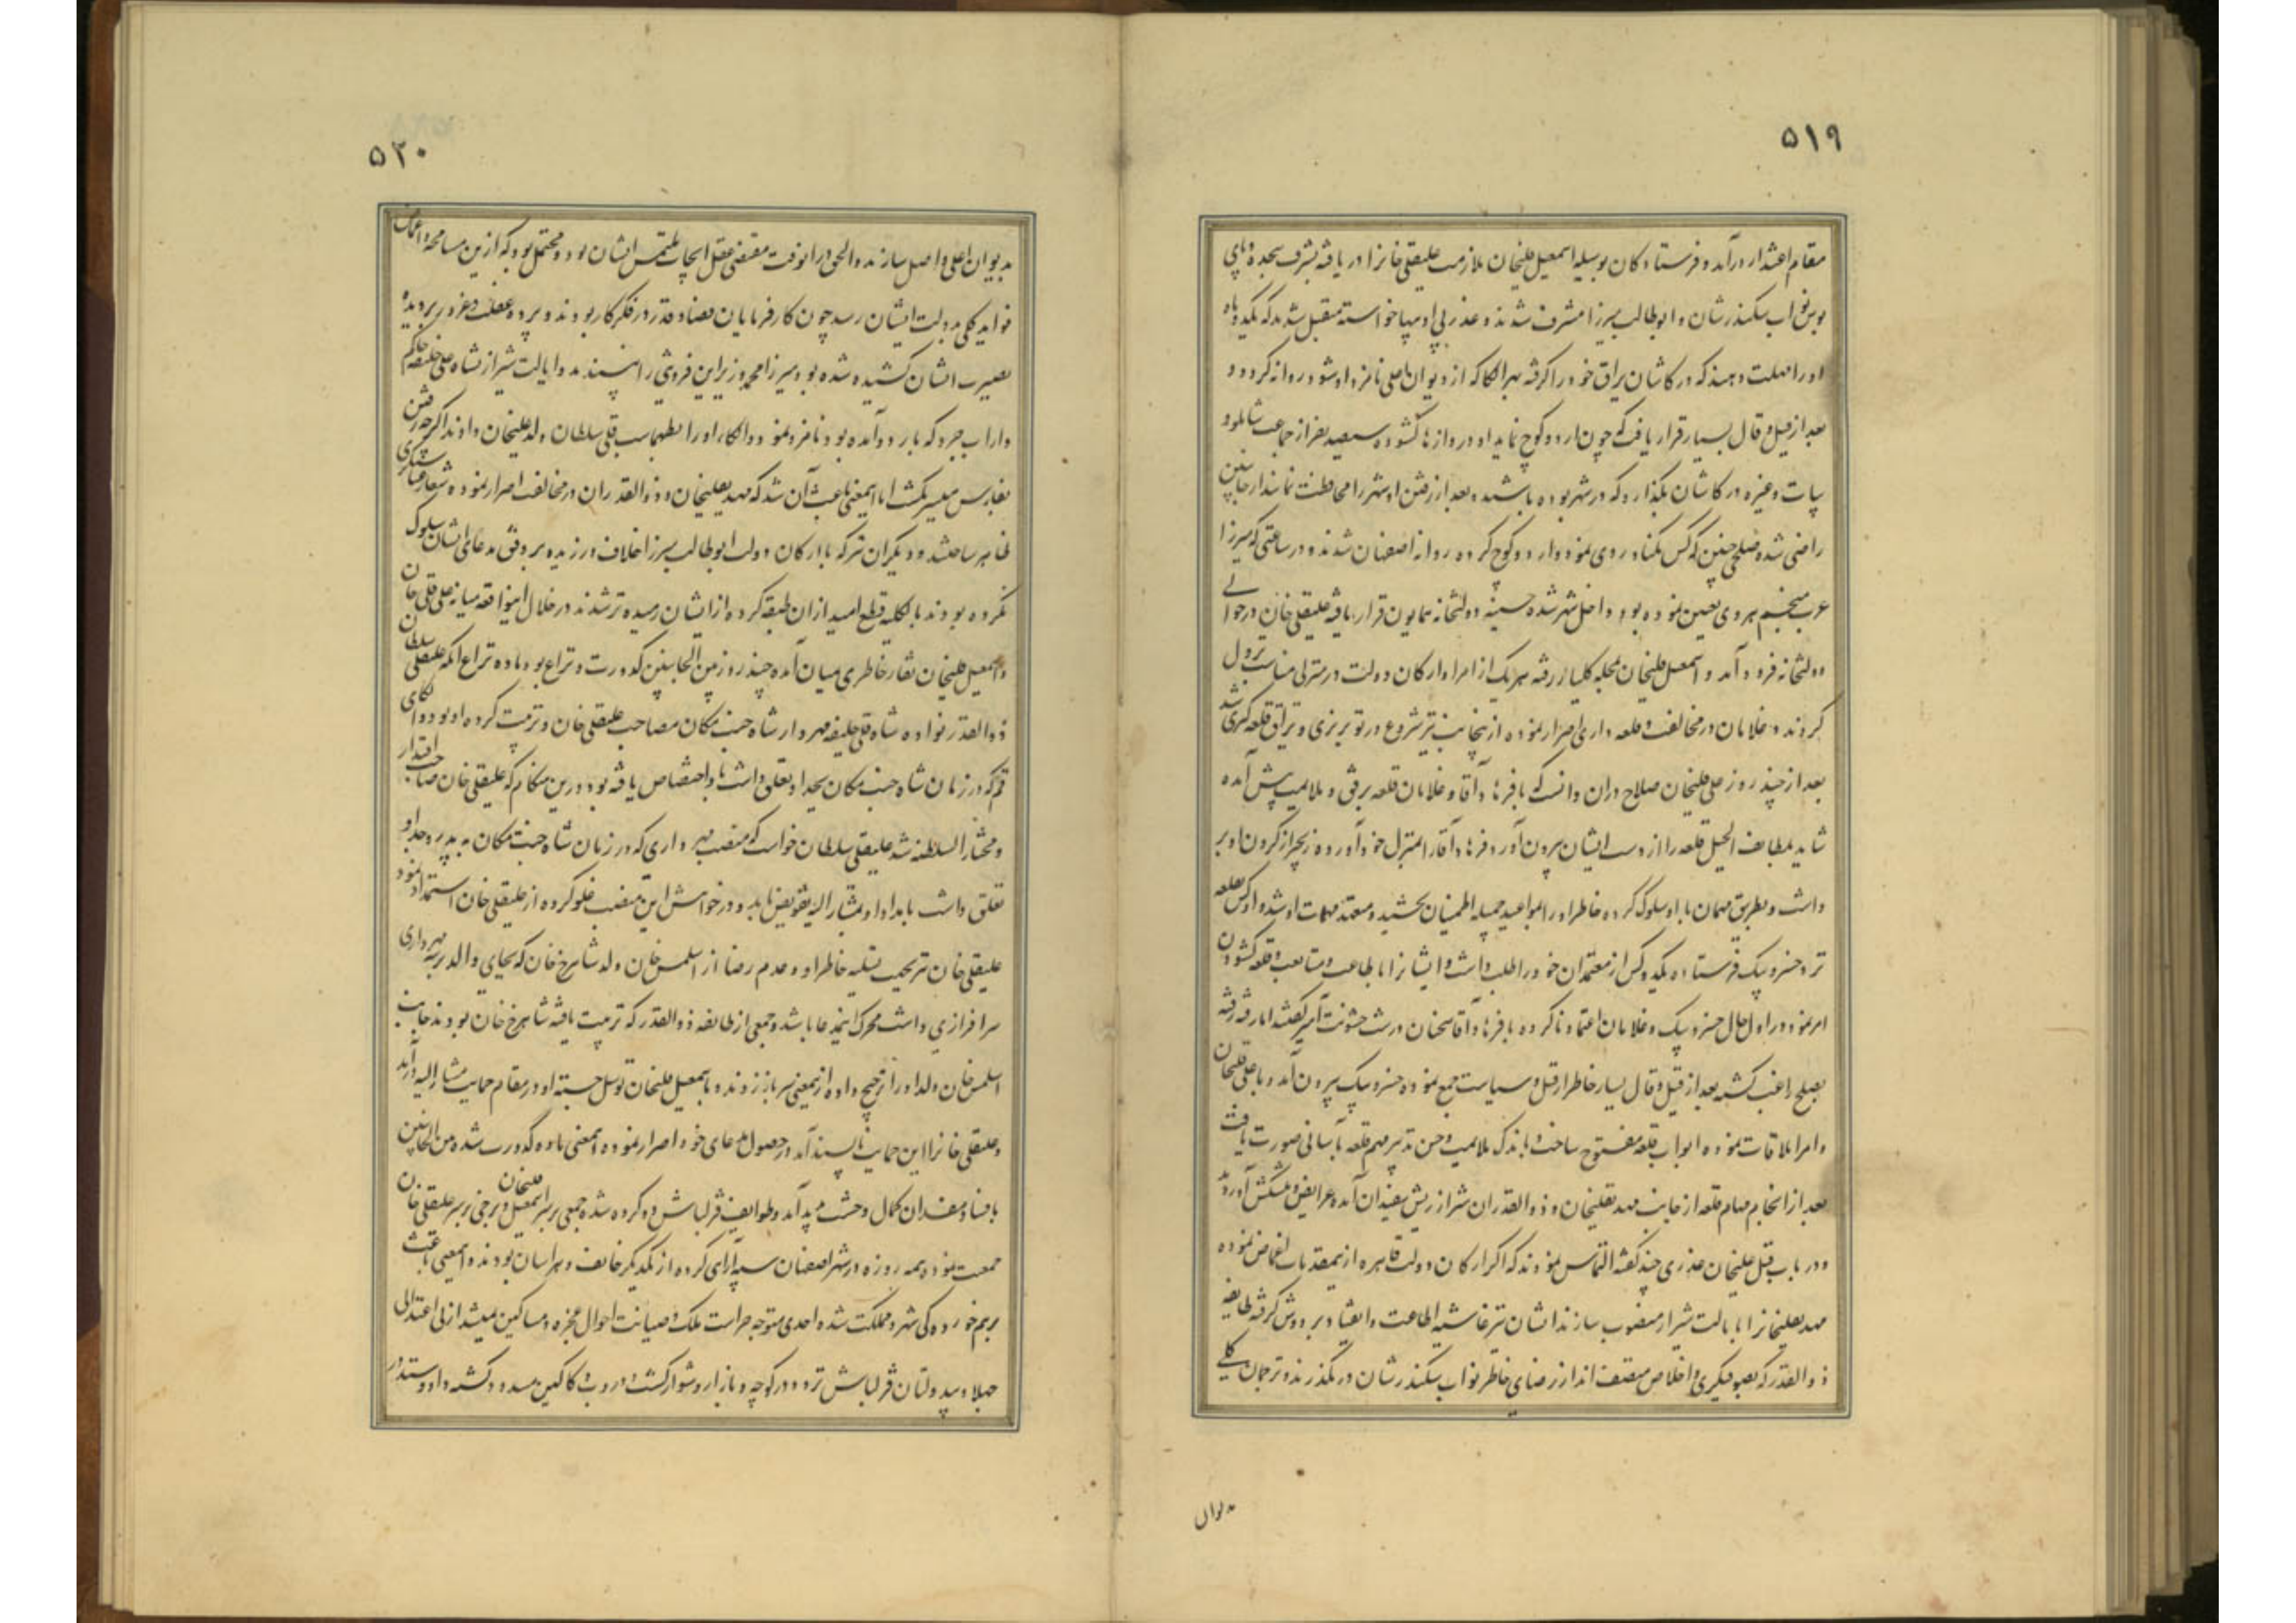 ۵۱۹
مقام اعتذار درآمد و فرستادکان بوسیله اسمعیل قلیخان ملازمت علیقلی خانرا دریافته بشرف سجده و پای
بوس نواب سکندرشان و ابوطالب میرزا مشرف شدند و عذر بی ادبیها خواسته متقبل شدند که یکدو ماه
او را مهلت دهند که در کاشان یراق خود را کرفته بهر الکا که از دیوان اعلی نامزد او شود روانه کردد و
بعد از قیل و قال بسیار قرار یافت که چون اردو کوچ نماید او دروازها کشوده سیصد نفر از جماعت شاملو و
بیات و غیره در کاشان بکذارد که در شهر بوده باشند و بعد از رفتن او شهر را محافظت نمایند از جانبین
راضی شده صلحی چنین که کس مکناد روی نمود و اردو کوچ کرده روانه اصفهان شدند و در ساعتی که میرزا
عرب منجم هروی تعیین نموده بود داخل شهر شده حسینه دولتخانه همایون قرار یافته علیقلی خان در حوالی
دولتخانه فرود آمد و اسمعیل قلیخان بمحله کلبار رفته هر یک از امرا و ارکان دولت در منزلی مناسب نزول
کردند و غلامان در مخالفت و قلعه داری اصرار نموده از نیجانب نیز شروع در توپ ریزی و یراق قلعه کیری شد
بعد از چند روز علی قلیخان صلاح دران دانست که با فرهاد آقا و غلامان قلعه برفق و ملایمت پیش آمده
شاید بلطایف الحیل قلعه را از دست ایشان بیرون آورد فرهاد آقا را بمنزل خود آورده زنجیر از کردن او بر
داشت و بطریق مهمان با او سلوک کرده خاطر او را بمواعید جمیله اطمینان بخشید و معتمد مهمات او شد و او کس بقلعه
نزد خسرو بیک فرستاده یکدو کس از معتمدان خود را طلب داشت و ایشانرا باطاعت و متابعت و قلعه کشودن
امر نمود در اول حال خسرو بیک و غلامان اعتماد ناکرده با فرهاد آقا سخنان درشت خشونت آمیز کفتند اما رفته رفته
بصلح راغب کشته بعد از قیل و قال بسیار خاطر از قتل و سیاست جمع نموده خسرو بیک بیرون آمد و با علی قلیخان
و امرا ملاقات نموده ابواب قلعه مفتوح ساخت و باندک ملایمت و حسن تدبیر مهم قلعه بآسانی صورت یافت
بعد از انجام مهام قلعه از جانب مهدیقلیخان و ذوالقدران شیراز ریش سفیدان آمده عرایض و پیشکش آوردند
و در باب قتل علیخان عذری چند کفته التماس نمودند که اکر ارکان دولت قاهره از نیمقدمات اغماض نموده
مهدیقلیخانرا بایالت شیراز منصوب سازند ایشان نیز غاشیه اطاعت و انقیاد بر دوش کرفته طایفه
ذوالقدر که بصوفیکری و اخلاص متصف اند از رضای خاطر نواب سکندرشان در نکذرند و ترجمان کلی
بدیوان
۵۲۰
بدیوان اعلی واصل سازند و الحق در انوقت مقتضی عقل انجاح ملتمس ایشان بود و محتمل بود که ازین مسامحه و اغماض
فواید کلی بدولت ایشان رسد چون کارفرمایان قضا و قدر در فکر کار بودند و پرده غفلت و غرور بر دیده
بصیرت ایشان کشیده شده بود میرزا محمد وزیر این فروشی را نپسندید و ایالت شیراز بشاه علی خلیفه حاکم
داراب جرد که باردو آمده بود نامزد نمود و الکاء او را بطهماسب قلی سلطان ولد علیخان دادند اکرچه رفتن
بفارس میسر نکشت اما اینمعنی باعث آن شد که مهدیقلیخان و ذوالقدران در مخالفت اصرار نموده شعار عصیان و ستمکری
ظاهر ساختند و دیکران نیز که با ارکان دولت ابوطالب میرزا خلاف ورزیده بر وفق مدعای ایشان سلوک
نکرده بودند بالکلیه قطع امید از ان طبقه کرده از ایشان رمیده تر شدند در خلال اینواقعه میانه علی قلی خان
و اسمعیل قلیخان نقار خاطری میان آمده چند روز من الجانبین کدورت و نزاع بود ماده نزاع انکه علیقلی سلطان
ذوالقدر نواده شاه قلی خلیفه مهردار شاه جنت مکان مصاحب علیقلی خان و تربیت کرده او بود و الکای
قم که در زمان شاه جنت مکان بجد او تعلق داشت باو اختصاص یافته بود درین هنکام که علیقلی خان صاحب اقتدار
و مختار السلطنه شد علیقلی سلطان خواست که منصب مهرداری که در زمان شاه جنت مکان به پدر و جد او
تعلق داشت بامداد او بمشار الیه تفویض یابد و در خواهش این منصب غلو کرده از علیقلی خان استمداد نمود
علیقلی خان بر حسب تسلیه خاطر او و عدم رضا از اسلمس خان ولد شاهرخ خان که بجای والد برتبه مهرداری
سرافرازی داشت محرک اینمدعا باشد و جمعی از طایفه ذوالقدر که تربیت یافته شاهرخ خان بودند جانب
اسلمس خان ولد او را ترجیح داده از نیمعنی سر باز زدند و باسمعیل قلیخان توسل جسته او در مقام حمایت مشار الیه درآمد
و علیقلی خانرا این حمایت ناپسند آمد در حصول مدعای خود اصرار نموده اینمعنی ماده کدورت شده من الجانبین
بافساد مفسدان بکمال وحشت پدید آمد و طوایف قزلباش دو کروه شده جمعی بر سر اسمعیل قلیخان و برخی بر سر علیقلی خان
جمعیت نموده همه روزه در شهر اصفهان سپه آرای کرده از یکدیکر خائف و هراسان بودند و اینمعنی باعث
برهم خوردکی شهر و مملکت شده احدی متوجه حراست ملک و صیانت احوال عجزه و مساکین نمیشد از بی اعتدالی
جهلا و بیدولتان قزلباش تردد در کوچه و بازار دشوار کشت و دروب دکاکین مسدود کشته داد و ستد در